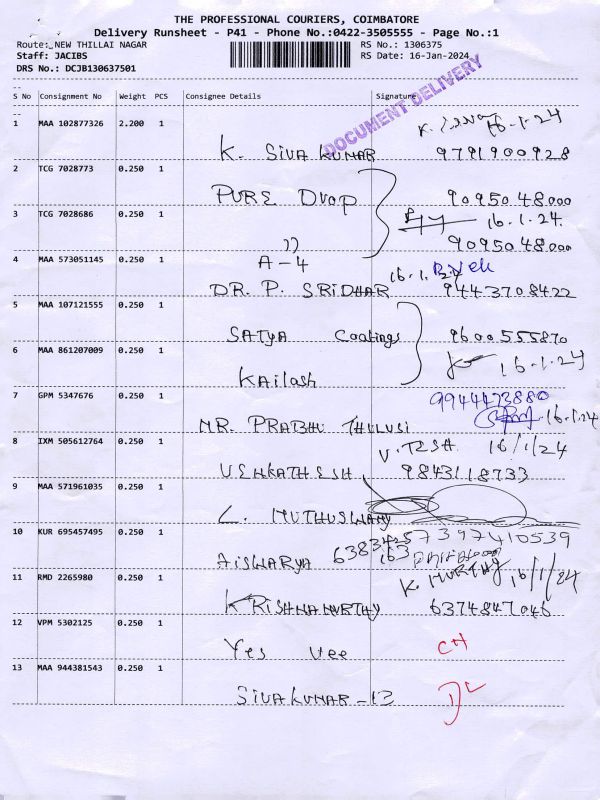 THE PROFESSIONAL COURIERS, COIMBATORE
Delivery Runsheet - P41 - Phone No.:0422-3505555 - Page No.:1
Route: NEW THILLAI NAGAR RS No.: 1306375
Staff: JACIBS RS Date: 16-Jan-2024
DRS No.: DCJB130637501
S No Consignment No Weight PCS Consignee Details Signature
DOCUMENT DELIVERY
1 MAA 102877326 2.200 1 16-1-24
K. SIVA KUMAR 9791900928
2 TCG 7028773 0.250 1
PURE Drop 9095048000
3 TCG 7028686 0.250 1 16.1.24.
" 9095048000
4 MAA 573051145 0.250 1 A-4 16.1.24
DR. P. SRIDHAR 9443708422
5 MAA 107121555 0.250 1
SATYA Coatings 9600555870
6 MAA 861207009 0.250 1 16.1.24
Kailash
7 GPM 5347676 0.250 1 9944473880
16.1.24
MR. PRABHU THULUSI
8 IXM 505612764 0.250 1 16/1/24
VENKATHESH 9843118733
9 MAA 571961035 0.250 1
L. MUTHUSWAMY
10 KUR 695457495 0.250 1 7397410539
AISWARYA
11 RMD 2265980 0.250 1 K. MURTHY 16/1/24
KRISHNAMURTHY 6374847046
12 VPM 5302125 0.250 1
Yes Vee CH
13 MAA 944381543 0.250 1
SIVAKUMAR -13 DL